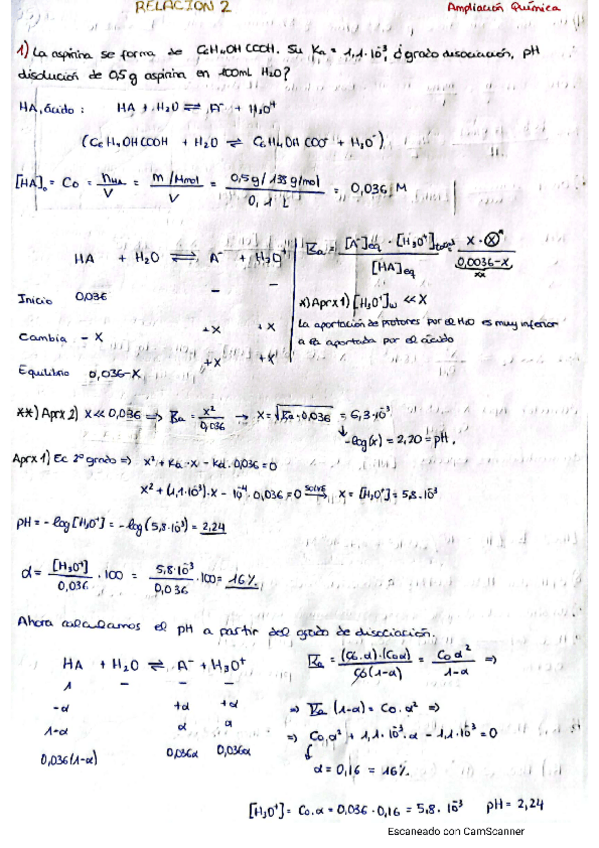 RELACION 2
Ampliación Química
1) La aspirina se forma de C6H4OHCOOH. Su Ka = 1,1·10⁻³, ¿grado disociación, pH
disolución de 0,5g aspirina en 100mL H2O?
HA, ácido : HA + H2O ⇌ A⁻ + H3O⁺
(C6H4OHCOOH + H2O ⇌ C6H4OHCOO⁻ + H3O⁺)
[HA]₀ = Co = n/V = (m/Mmol)/V = (0,5g/138g/mol)/(0,1 L) = 0,036 M
HA + H2O ⇌ A⁻ + H3O⁺
Inicio 0,036 − −
Cambia − x +x +x
Equilibrio 0,036-x +x +x
Ka = [A⁻]eq · [H3O⁺] / [HA]eq = x · x / 0,0036-x
*) Aprx 1) [H3O⁺]w << x
La aportación de protones por el H2O es muy inferior
a la aportada por el ácido
**) Aprx 2) x << 0,036 ⇒ Ka = x²/0,036 → x = √Ka·0,036 = 6,3·10⁻³
-log(x) = 2,20 = pH.
Aprx 1) Ec 2º grado ⇒ x² + Ka·x − Ka·0,036 = 0
x² + (1,1·10⁻³)·x − 10⁻⁴·0,036 = 0 solve → x = [H3O⁺] = 5,8·10⁻³
pH = − log [H3O⁺] = − log (5,8·10⁻³) = 2,24
α = [H3O⁺]/0,036 · 100 = 5,8·10⁻³/0,036 · 100 = 16%
Ahora calculamos el pH a partir del grado de disociación.
HA + H2O ⇌ A⁻ + H3O⁺
1 − − −
-α +α +α
1-α α α
0,036(1-α) 0,036α 0,036α
Ka = (Co.α)·(Coα) / Co(1-α) = Co α² / 1-α ⇒
⇒ Ka (1-α) = Co·α² ⇒
⇒ Co α² + 1,1·10⁻³·α − 1,1·10⁻³ = 0
α = 0,16 = 16%
[H3O⁺] = Co·α = 0,036·0,16 = 5,8·10⁻³ pH = 2,24
Escaneado con CamScanner